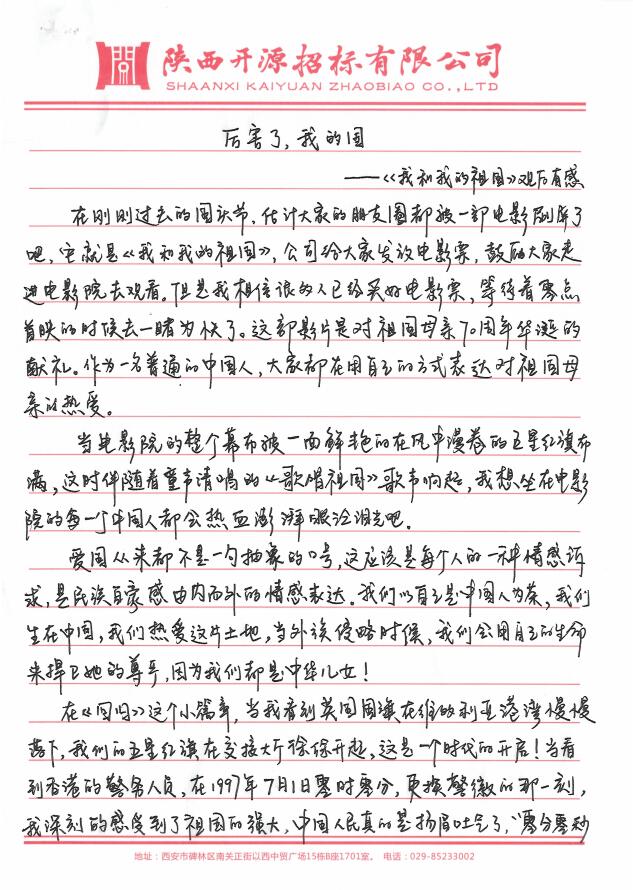 陕西开源招标有限公司
SHAANXI KAIYUAN ZHAOBIAO CO.,LTD
厉害了,我的国
——《我和我的祖国》观后有感
在刚刚过去的国庆节,估计大家的朋友圈都被一部电影刷屏了
吧,它就是《我和我的祖国》,公司给大家发放电影票,鼓励大家走
进电影院去观看。但是我相信很多人已经买好电影票,等待着零点
首映的时候去一睹为快了。这部影片是对祖国母亲70周年华诞的
献礼。作为一名普通的中国人,大家都在用自己的方式表达对祖国母
亲的热爱。
当电影院的整个幕布被一面鲜艳的在风中漫卷的五星红旗布
满,这时伴随着童声清唱的《歌唱祖国》歌声响起,我想坐在电影
院的每一个中国人都会热血澎湃眼泛泪光吧。
爱国从来都不是一句抽象的口号,这应该是每个人的一种情感诉
求,是民族自豪感由内而外的情感表达。我们以自己是中国人为荣,我们
生在中国,我们热爱这片土地,当外族侵略时候,我们会用自己的生命
来捍卫她的尊严,因为我们都是中华儿女!
在《回归》这个小篇章,当我看到英国国旗在维多利亚港湾慢慢
落下,我们的五星红旗在交接大厅徐徐升起,这是一个时代的开启!当看
到香港的警务人员,在1997年7月1日零时零分,更换警徽的那一刻,
我深刻的感受到了祖国的强大,中国人民真的是扬眉吐气了,“零分零秒
地址:西安市碑林区南关正街以西中贸广场15栋B座1701室。 电话:029-85233002